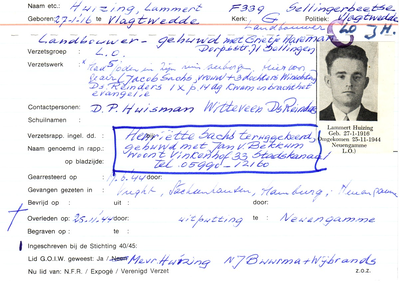 Naam etc.: Huizing, Lammert F339 Sellingerbeetse
27-1-1916 te Vlagtwedde Kerk: G Politiek: Vlagtwedde
Landbouwer
Landbouwer - gehuwd met Huisman
Dorpsstr, 31 Sellingen
LO JH.
Verzetsgroep: L.O.
Verzetswerk: Had Joden in zijn
(Jacob Sachs, vrouw + 3 dochters
Ds. Reinders 1 x p. 14 dg kwam inbreukt het
evangelie
Contactpersonen: D.P. Huisman Witteveen Ds Reinders
Schuilnaam :
Lammert Huizing
Geb. 27-1-1916
Omgekomen 25-11-1944
Neuengamme
L.O.)
Verzetsrapp. ingel. dd. : Henriette Sachs teruggekeerd
Naam genoemd in rapp. : gehuwd met Jan v Bekkum
op bladzijde: woont Vinkenhof 33 Stadskanaal
Tel. 05990-12160
Gearresteerd op : 44 door :
Gevangen gezeten in : Vught, Sachsenhausen, Hamburg, Neuengamme
Bevrijd op : uit : door :
Overleden op : 25-11-44 door : uitputting te : Neuengamme
Begraven op : te :
Ingeschreven bij de Stichting 40/45:
Lid G.O.I.W. geweest: Ja / Neen Mevr Huizing NJ Buurma + Wijbrands
Nu lid van: N.F.R. / Expogé / Verenigd Verzet z.o.z.